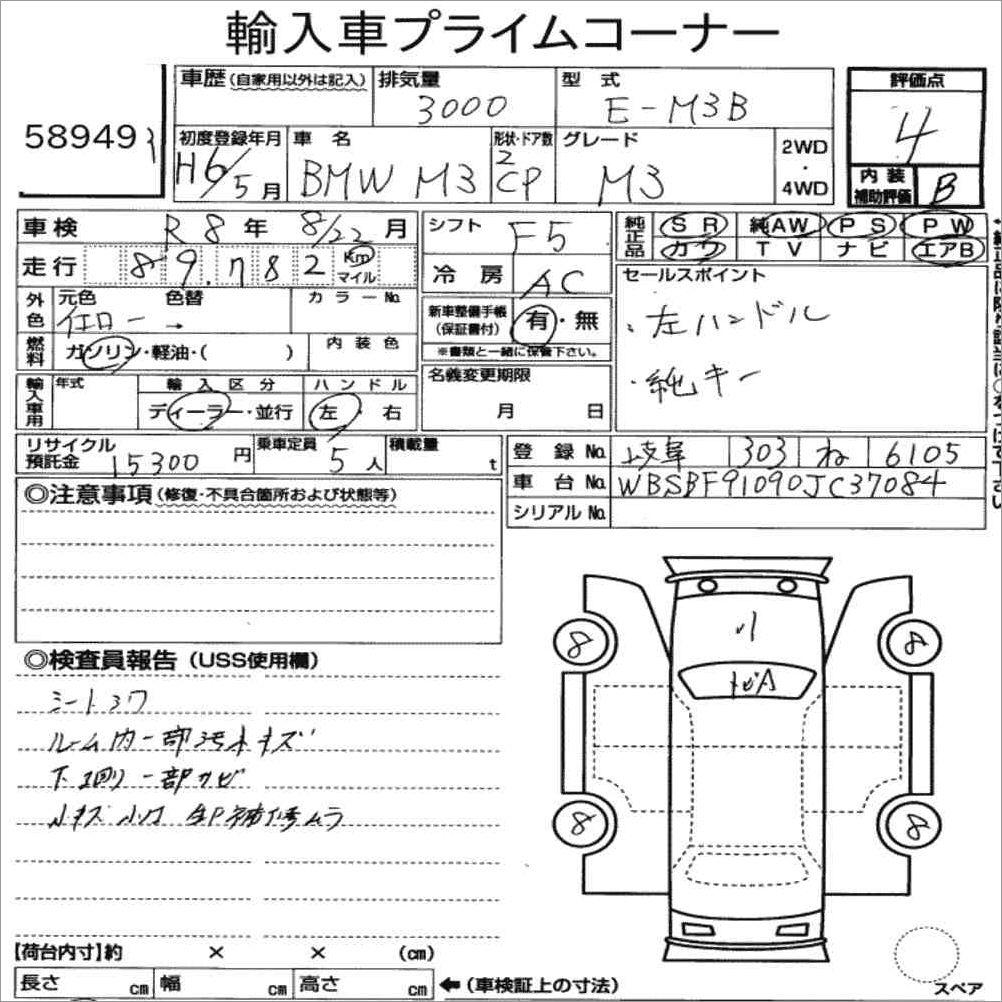 輸入車プライムコーナー
58949
車歴(自家用以外は記入) 排気量 3000 型式 E-M3B 評価点 4
初度登録年月 H6/5月 車名 BMW M3 形状・ドア数 2 CP グレード M3 2WD・4WD 内装補助評価 B
車検 R8年 8/22月 シフト F5 純正品 SR 純AW PS PW
カワ TV ナビ エアB
走行 89.782 Km マイル 冷房 AC セールスポイント
外色 元色 イエロー 色替 → カラーNo. 新車整備手帳(保証書付) 有・無 ・左ハンドル
燃料 ガソリン・軽油・( ) 内装色 ※書類と一緒に保管下さい。 ・純キー
輸入車用 年式 輸入区分 ディーラー・並行 ハンドル 左・右 名義変更期限 月 日
リサイクル預託金 15300円 乗車定員 5人 積載量 t 登録No. 岐阜 303 ね 6105
車台No. WBSBF91090JC37084
◎注意事項(修復・不具合箇所および状態等) シリアルNo.
◎検査員報告(USS使用欄)
シートスワ
ルーム内一部汚れキズ
下回り一部サビ
小キズ 小凹 部補修ムラ
小
トビA
8 8
8 8
【荷台内寸】約 × × (cm)
長さ cm 幅 cm 高さ cm ←(車検証上の寸法)
スペア